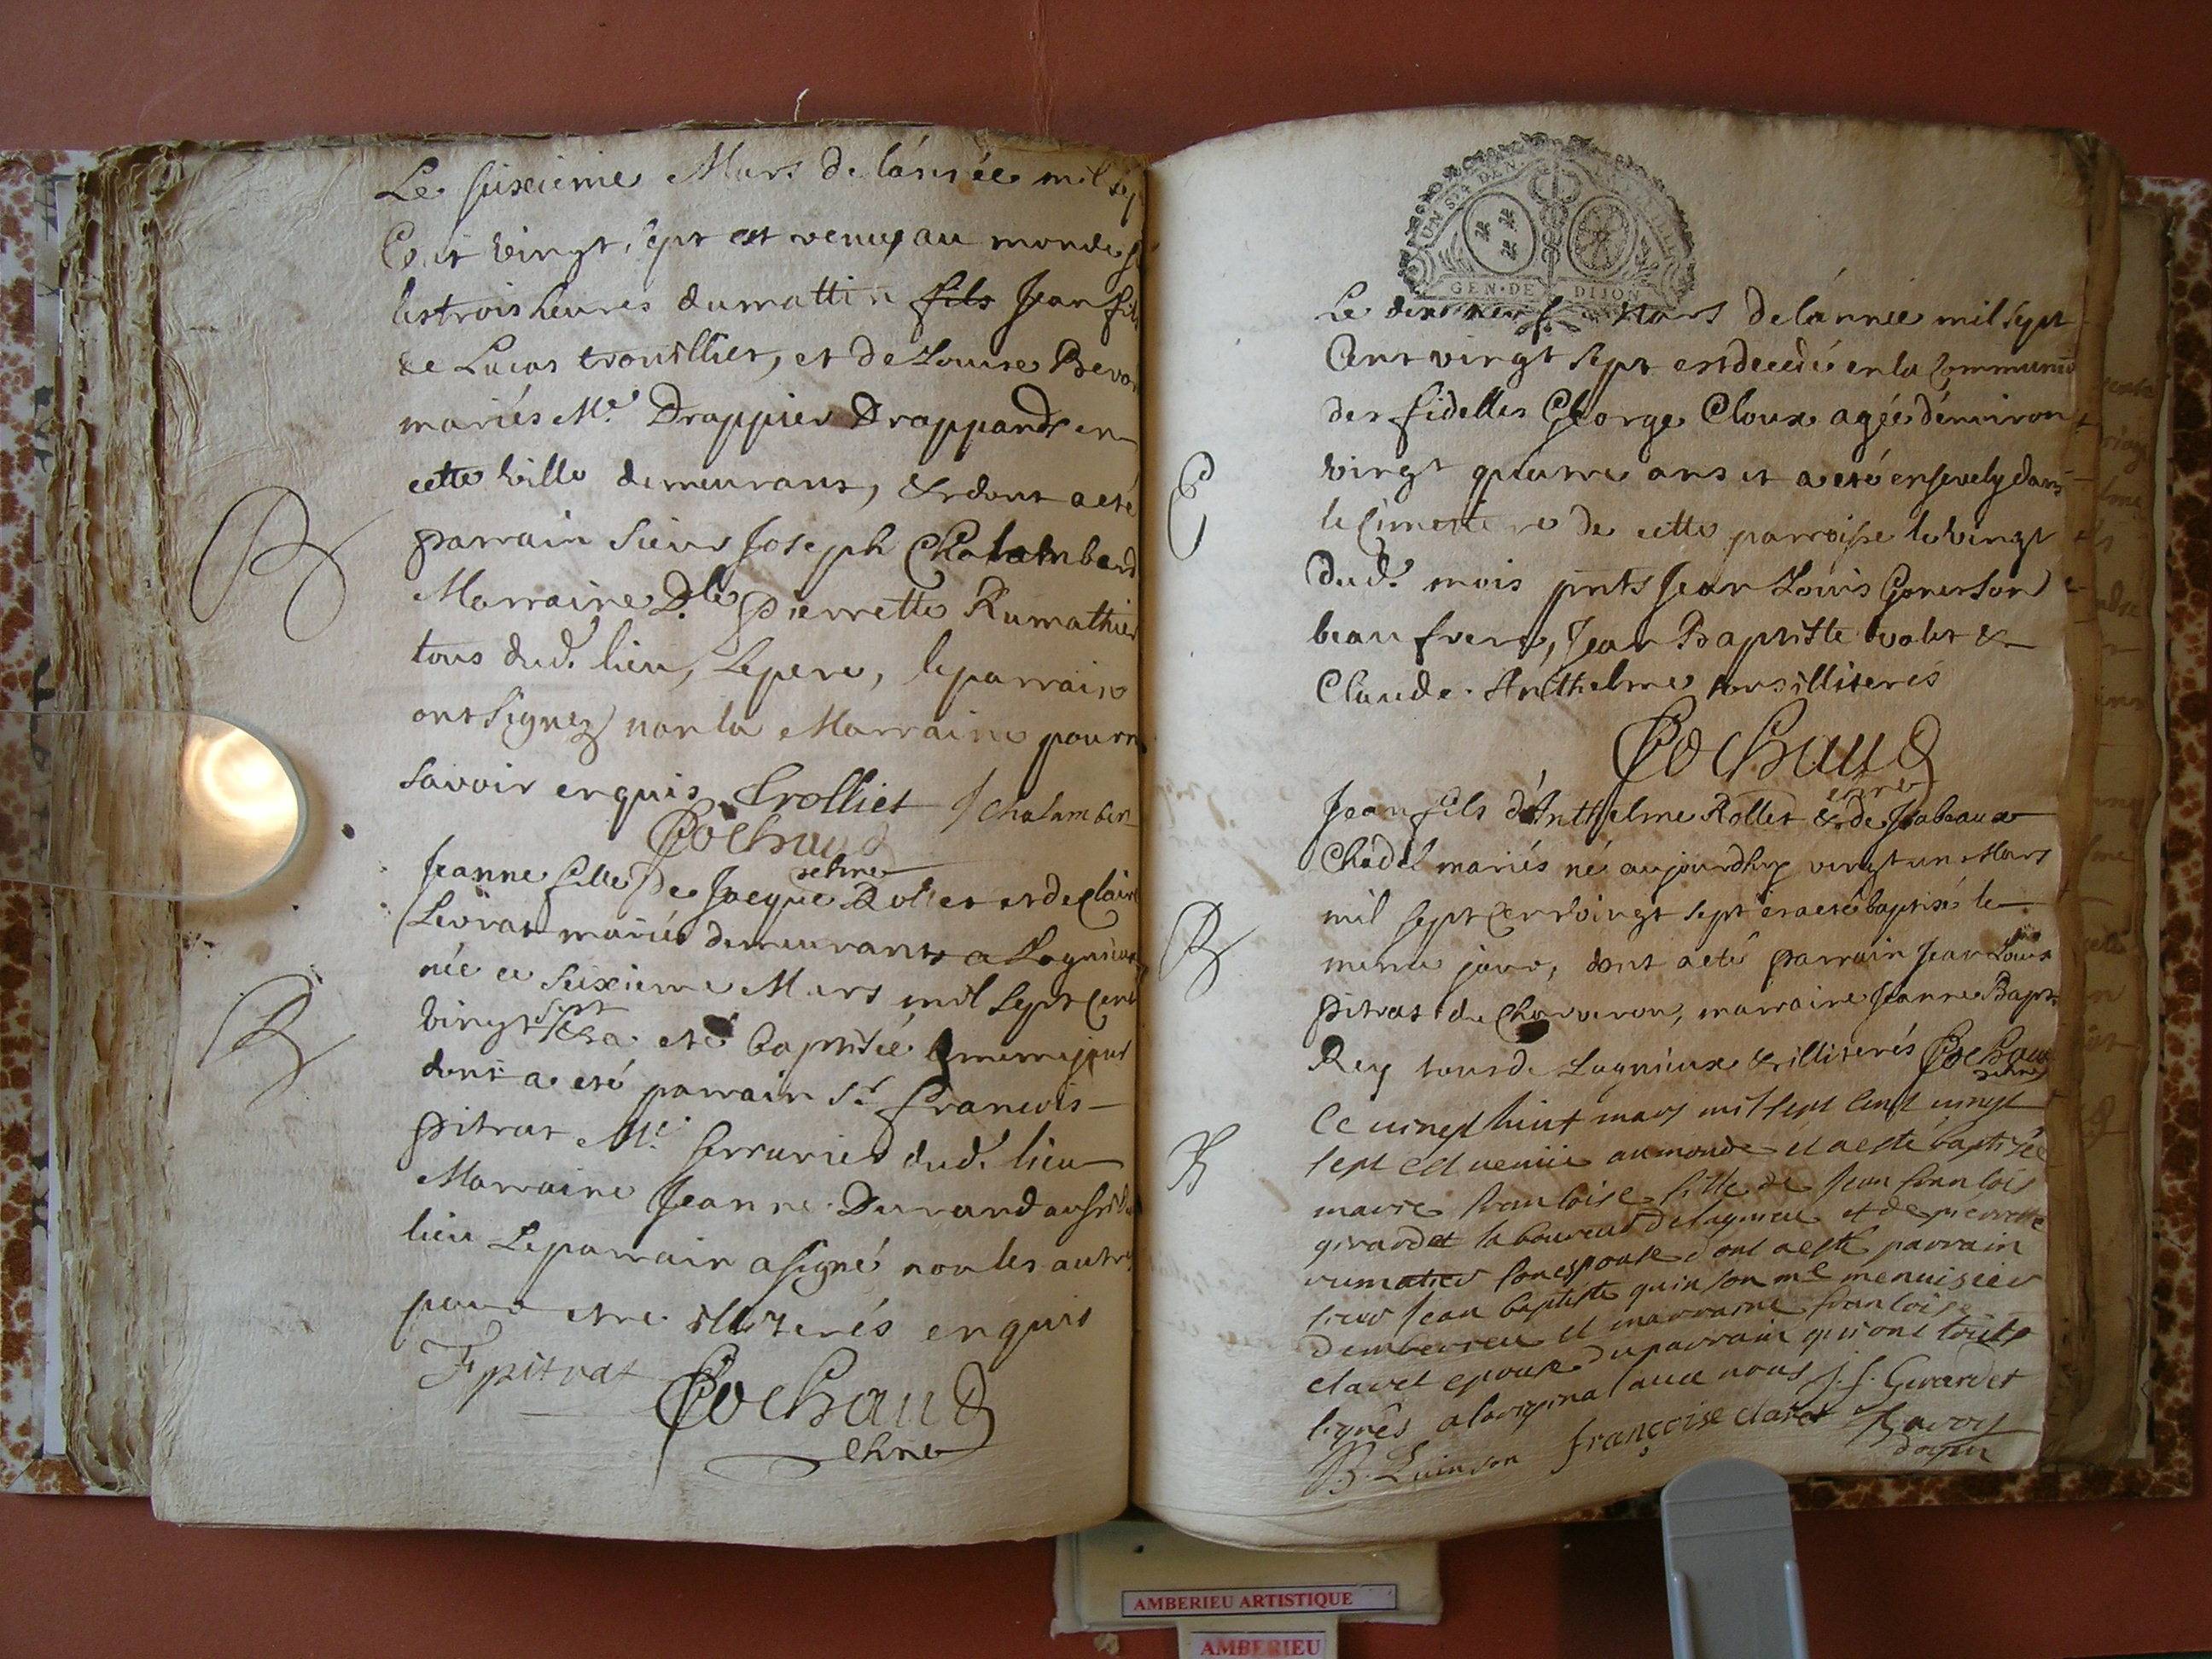 Le sixieme Mars de lánnée mil sep
Cent vingt sept est venu au monde
les trois heures du mattin fils Jean fils
de Lucas trouilliet, et de Louise
mariés Me. Drappier Drappands en
cette ville demeurans, & dont a eté
parrain Sieur Joseph Chalambard
Marraine Dlle pierrette Rumathier
tous dud. lieu, Le pere, le parrain
ont signez non la Marraine pour
savoir enquis Trolliet J Chalamber
Cochaud
Jeanne fille de Jacque Rollet et de Claire
Levrat mariés demeurants a Lagnieu
née ce sixieme Mars mil sept Cent
sept
vingt & a eté baptisée le meme jour
dont a eté parrain Sr. francois
pitrat Me. serrurier dud. lieu
Marraine Jeanne Durand aussi
lieu Le parrain a signé non les autres
pour etre illiterés enquis
F pitrat Cochaud
UN S. 4 DEN
GEN·DE DIJON
Le Mars de lánnée mil sept
Cent vingt sept est decedé en la Communio
des fidelles George Cloux agée dénviron
vingt quatre ans et a eté ensevely dans
le Cimetiere de cette parroisse le vingt
dud. mois pnts Jean Louis Gonerson
beau frere, Jean Baptiste &
Claude Anthelme tous illiterés
Cochaud
Jean fils d'Anthelme Rollet & de Isabeau
Chadel mariés né aujourdhuy vingt un Mars
mil sept Cent vingt sept et a eté baptisé le
meme jour, dont a eté parrain Jean Louis
pitrat de Charveron, marraine Jeanne Bapt
Rey tous de Lagnieux & illiterés Cochaud
le vingt huit mars mil sept cent vingt
sept est venüe au monde et a esté baptisée
marie francoise fille de jean francois
girardet laboureur de lagnieu et de pierrette
rumatier son espouse dont a esté parrain
sieur jean baptiste quinson me menuisier
dambérieu et marraine francoise
clavel epouse du parrain qui ont touts
signés a loriginal avec nous J. f. Girardet
B. Quinson françoise clavel
AMBERIEU ARTISTIQUE
AMBERIEU